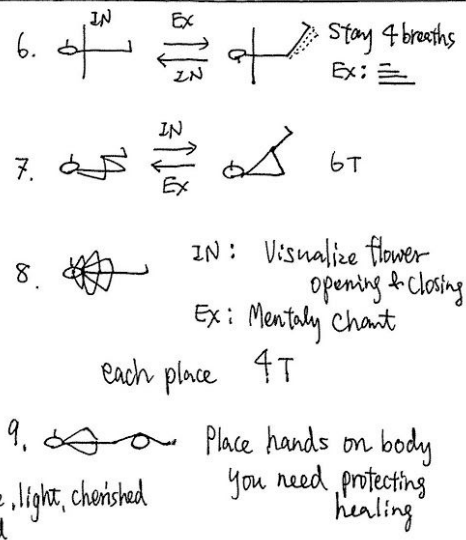 6. IN Ex IN Stay 4 breaths
Ex:
7. IN Ex 6T
8. IN: Visualize flower
opening & closing
Ex: Mentaly Chant
each place 4T
9. Place hands on body
you need protecting
light, cherished
healing